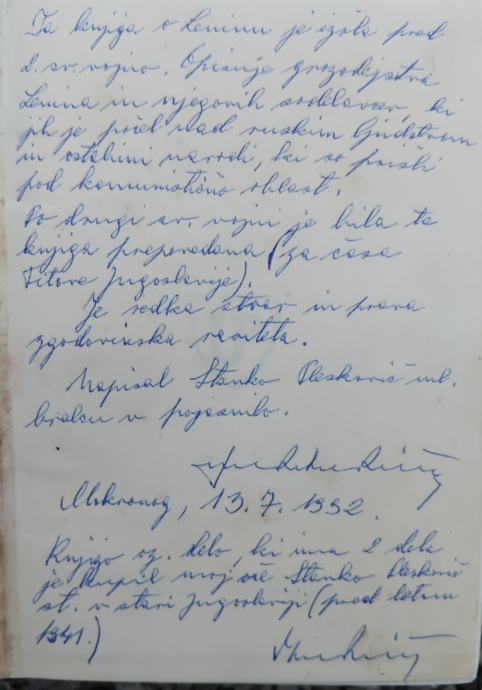 Ta knjiga o Leninu je izšla pred
2. sv. vojno. Opisuje grozodejstva
Lenina in njegovih sodelavcev, ki
jih je počel nad ruskim ljudstvom
in ostalimi narodi, ki so prišli
pod komunistično oblast.
Po drugi sv. vojni je bila ta
knjiga prepovedana (za časa
Titove Jugoslavije).
Je redka stvar in prava
zgodovinska rariteta.
Napisal Stanko Pleskovič ml.
bralcu v pojasnilo.
Mokronog, 13.7.1992.
Knjigo oz. delo, ki ima 2 dela
je kupil moj oče Stanko Pleskovič
st. v stari Jugoslaviji (pred letom
1941.)